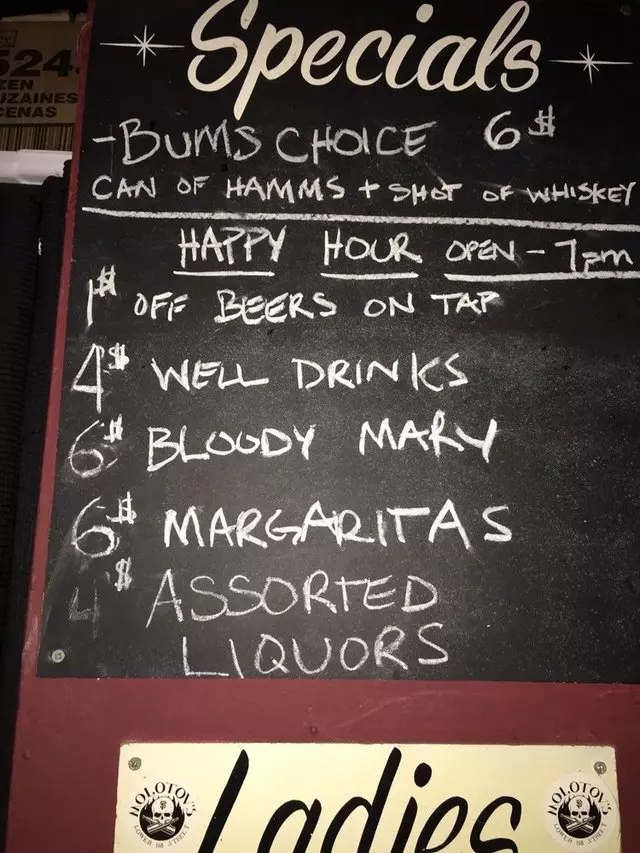 Specials
524
ZEN
UZAINES
CENAS
-BUMS CHOICE 6$
CAN OF HAMMS + SHOT OF WHISKEY
HAPPY HOUR OPEN - 7pm
1$ OFF BEERS ON TAP
4$ WELL DRINKS
6$ BLOODY MARY
6$ MARGARITAS
4$ ASSORTED
LIQUORS
Ladies
MOLOTOV'S
LOWER HAIGHT STREET
MOLOTOV'S